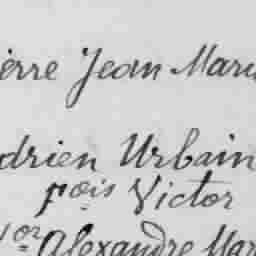 ierre Jean Mari
drien Urbain
çois Victor
or Alexandre Mar